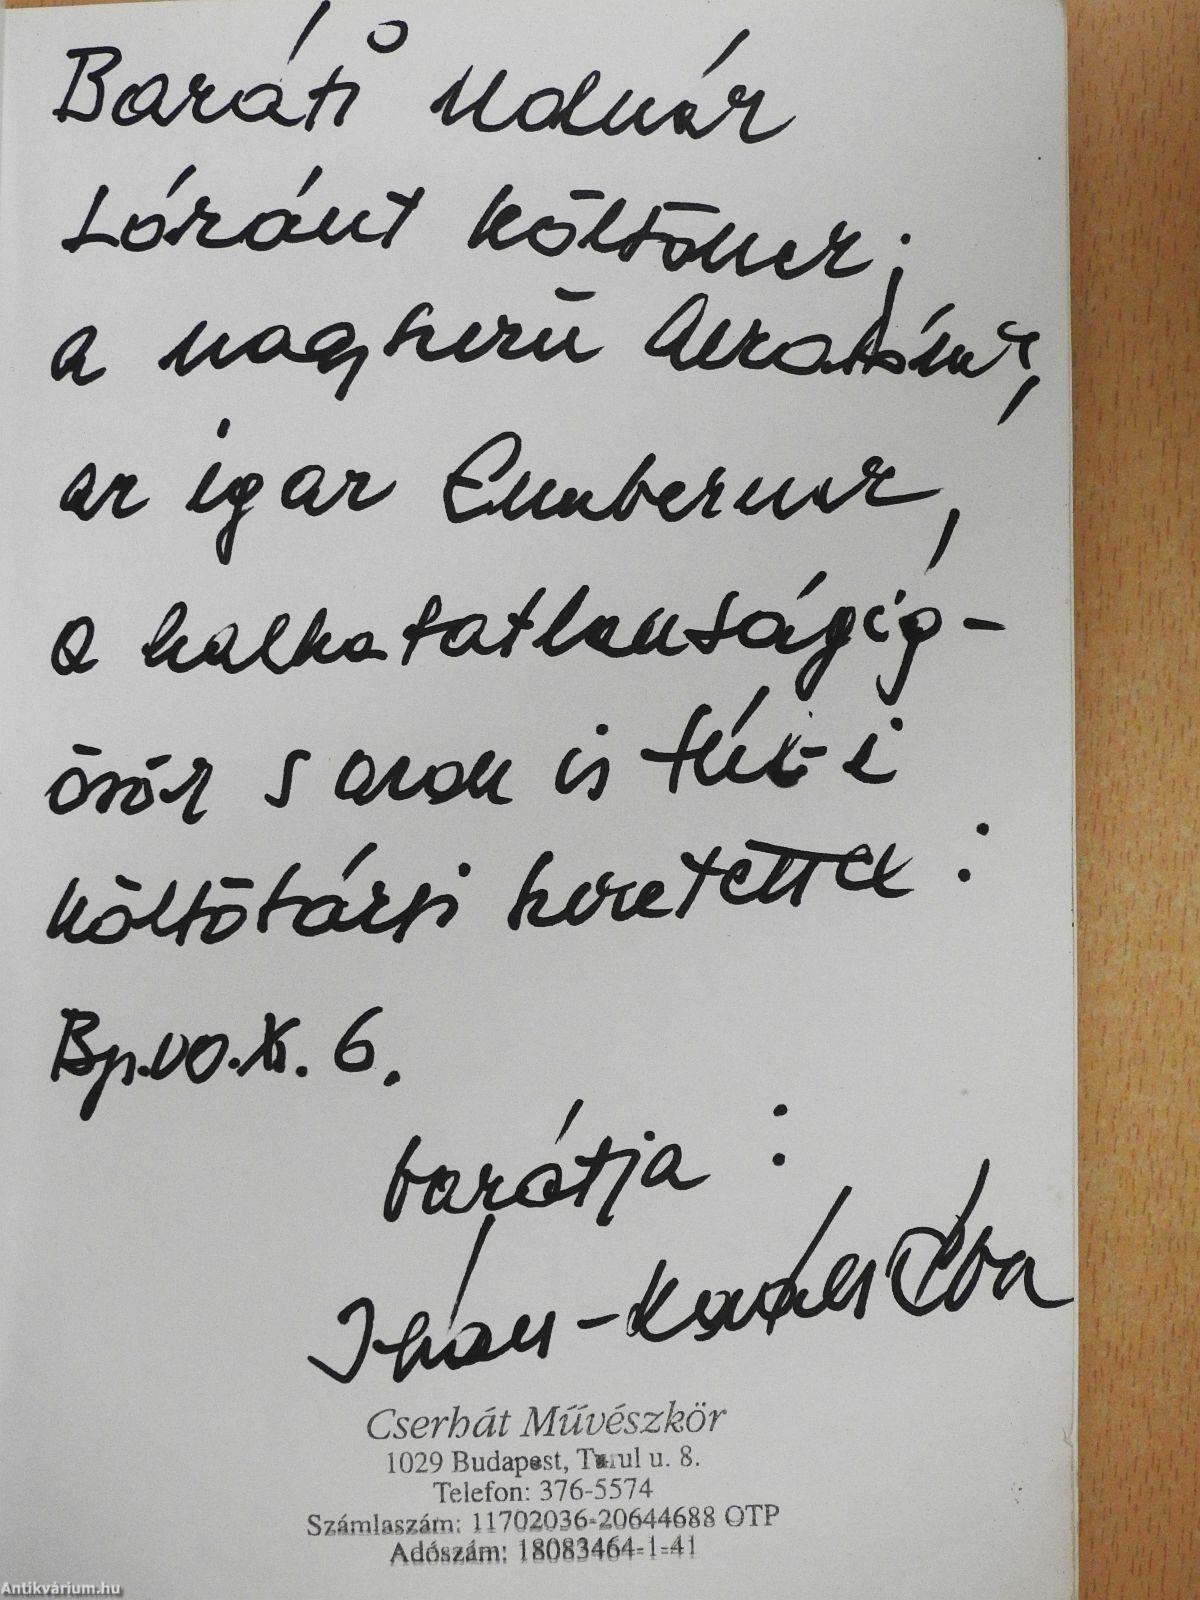 Baráti Molnár
Lóránt Költőnek;
a nagyszerű Alkotónak,
az igaz Embernek,
a halhatatlanságig-
őszök s azon is túl-i
költőtársi szeretettel:
Bp. 00. XI. 6.
barátja:
Ihász-Kovács Éva
Cserhát Művészkör
1029 Budapest, Turul u. 8.
Telefon: 376-5574
Számlaszám: 11702036-20644688 OTP
Adószám: 18083464-1-41
Antikvárium.hu